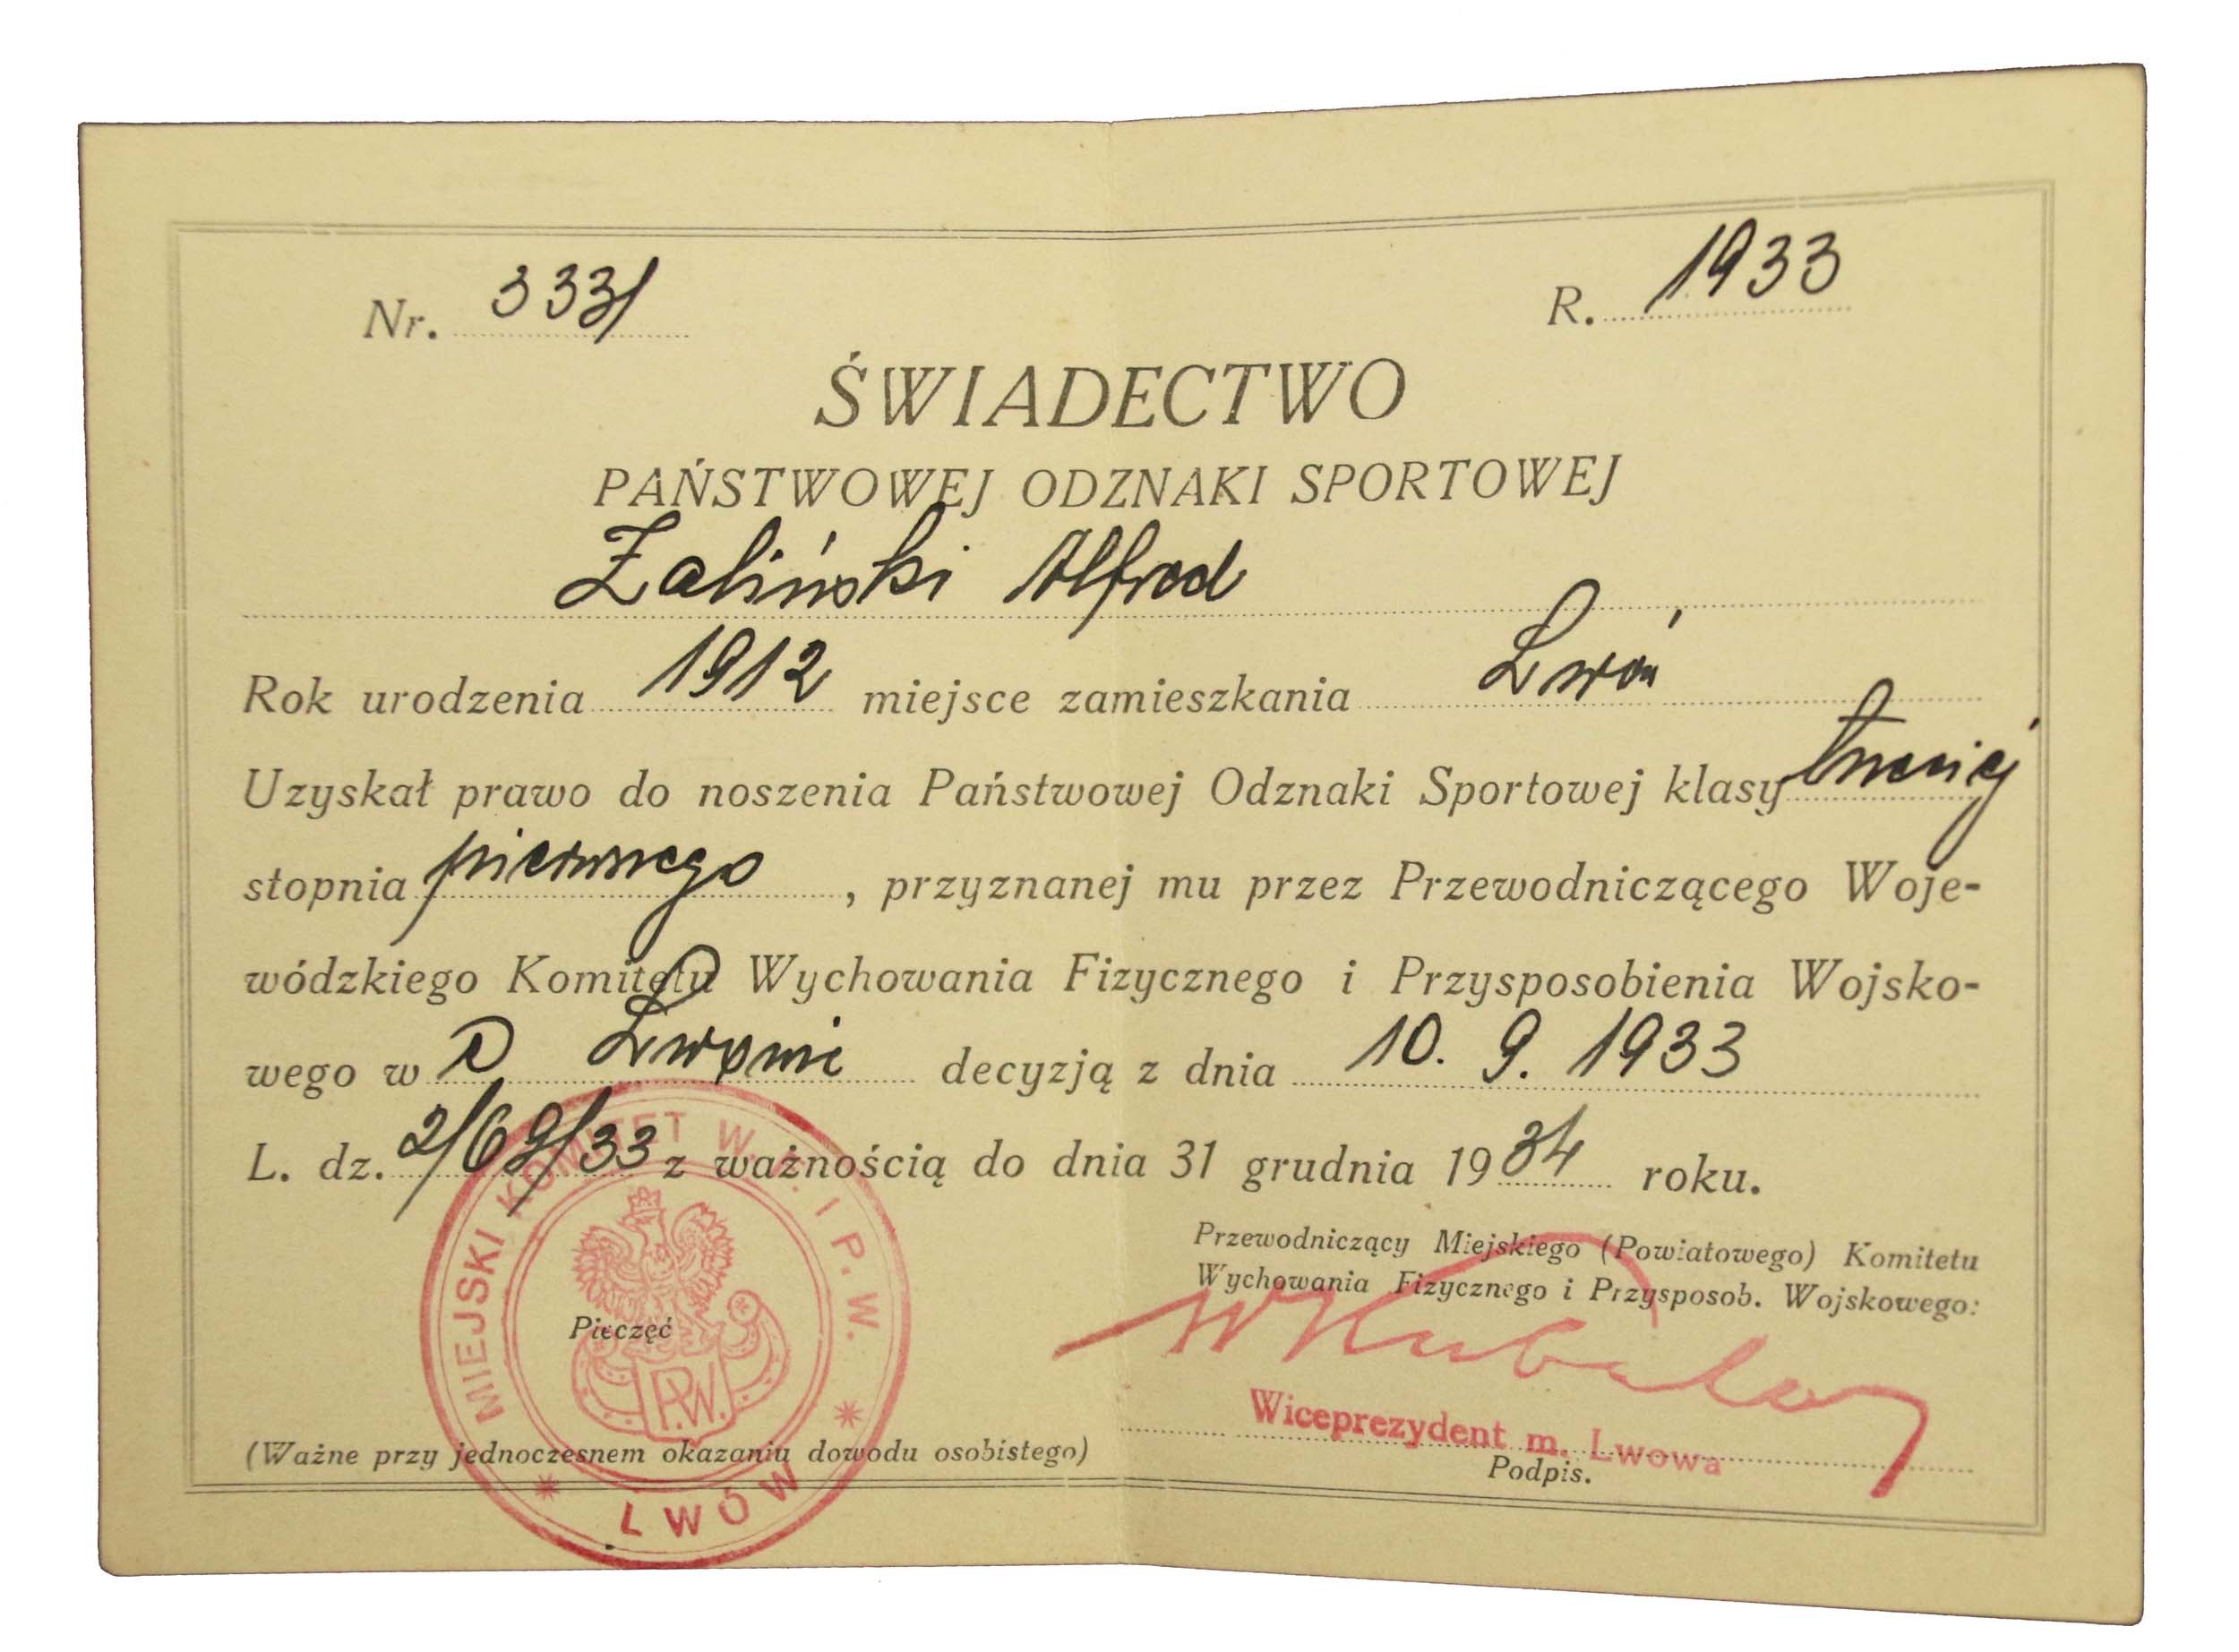 Nr. 333/
R. 1933
ŚWIADECTWO
PAŃSTWOWEJ ODZNAKI SPORTOWEJ
Zaliński Alfred
Rok urodzenia 1912 miejsce zamieszkania Lwów
Uzyskał prawo do noszenia Państwowej Odznaki Sportowej klasy trzeciej
stopnia pierwszego, przyznanej mu przez Przewodniczącego Woje-
wódzkiego Komitetu Wychowania Fizycznego i Przysposobienia Wojsko-
wego w Lwowie decyzją z dnia 10. 9. 1933
L. dz. 2/69/33 z ważnością do dnia 31 grudnia 1934 roku.
Przewodniczący Miejskiego (Powiatowego) Komitetu
Wychowania Fizycznego i Przysposob. Wojskowego:
MIEJSKI KOMITET W. F. I P. W.
Pieczęć
P.W.
LWÓW
Wiceprezydent m. Lwowa
(Ważne przy jednoczesnem okazaniu dowodu osobistego)
Podpis.